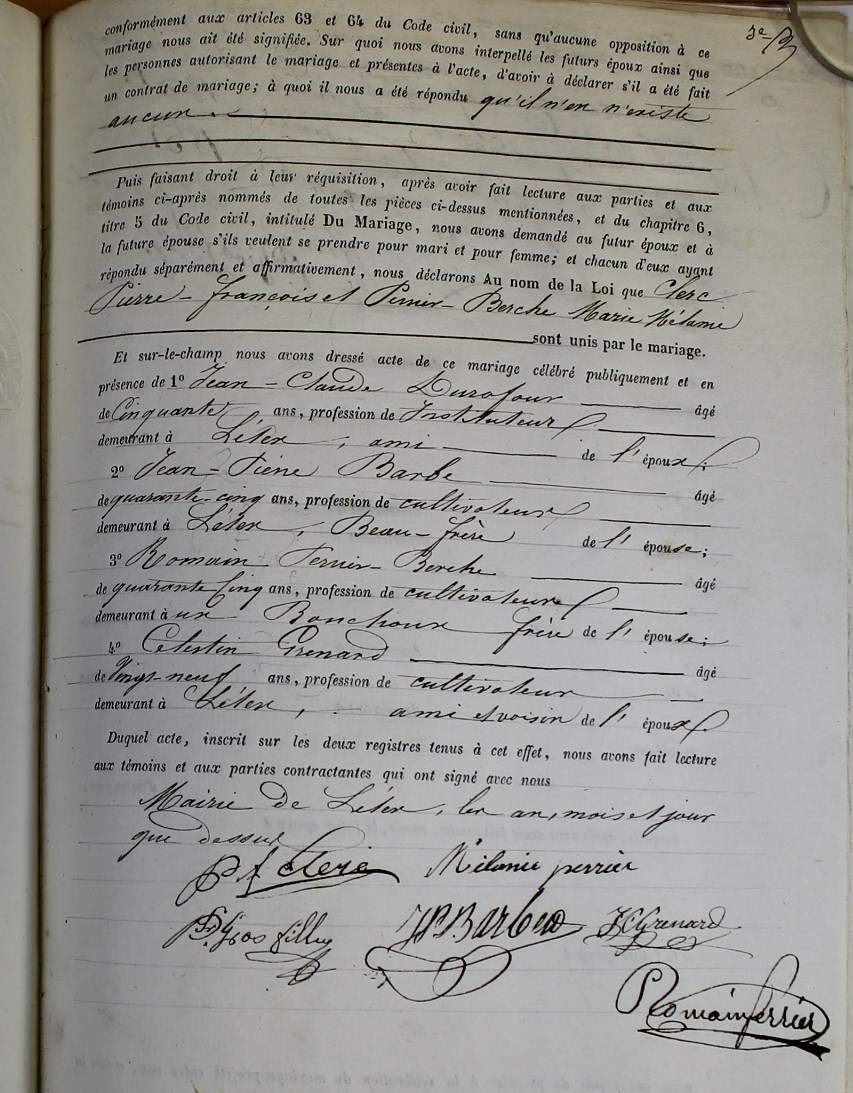 conformément aux articles 63 et 64 du Code civil, sans qu'aucune opposition à ce
mariage nous ait été signifiée. Sur quoi nous avons interpellé les futurs époux ainsi que
les personnes autorisant le mariage et présentes à l'acte, d'avoir à déclarer s'il a été fait
un contrat de mariage; à quoi il nous a été répondu qu'il n'en n'existe
aucun.
Puis faisant droit à leur réquisition, après avoir fait lecture aux parties et aux
témoins ci-après nommés de toutes les pièces ci-dessus mentionnées, et du chapitre 6,
titre 5 du Code civil, intitulé Du Mariage, nous avons demandé au futur époux et à
la future épouse s'ils veulent se prendre pour mari et pour femme; et chacun d'eux ayant
répondu séparément et affirmativement, nous déclarons Au nom de la Loi que Clerc
Pierre-François et Perrier-Berche Marie Mélanie
sont unis par le mariage.
Et sur-le-champ nous avons dressé acte de ce mariage célébré publiquement et en
présence de 1º Jean-Claude Durafour âgé
de Cinquante ans, profession de Instituteur
demeurant à Lélex, ami de l'époux;
2º Jean-Pierre Barbe âgé
de quarante-cinq ans, profession de cultivateur
demeurant à Lélex, Beau-frère de l'épouse;
3º Romain Perrier-Berche âgé
de quarante Cinq ans, profession de cultivateur
demeurant à aux Bouchoux frère de l'épouse;
4º Célestin Grenard âgé
de Vingt-neuf ans, profession de cultivateur
demeurant à Lélex, ami et voisin de l'époux
Duquel acte, inscrit sur les deux registres tenus à cet effet, nous avons fait lecture
aux témoins et aux parties contractantes qui ont signé avec nous
Mairie de Lélex, les an, mois et jour
que dessus
P f Clerc Mélanie perrier
Gros fillex JPBarbe JCGrenard
Romain Perrier